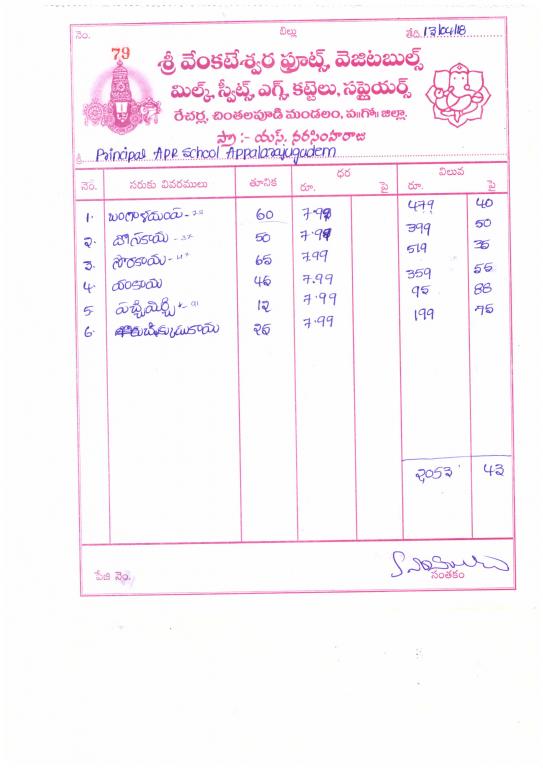 నెం. బిల్లు తేది. 13/04/18
79
శ్రీ వేంకటేశ్వర ఫ్రూట్స్, వెజిటబుల్స్
మిల్క్, స్వీట్స్, ఎగ్స్, కట్టెలు, సప్లైయర్స్
రేచర్ల, చింతలపూడి మండలం, ప॥గో॥ జిల్లా.
ప్రొ :- యస్. నరసింహరాజు
శ్రీ Principal APR School Appalarajugudem
నెం. సరుకు వివరములు తూనిక ధర విలువ
రూ. పై రూ. పై
1. 60 7.99 479 40
2. దోసకాయ 50 7.99 399 50
3. సొరకాయ 65 7.99 519 35
4. వంకాయ 45 7.99 359 55
5. పచ్చిమిర్చి 12 7.99 95 88
6. 25 7.99 199 75
2053 43
పేజి నెం. సంతకం